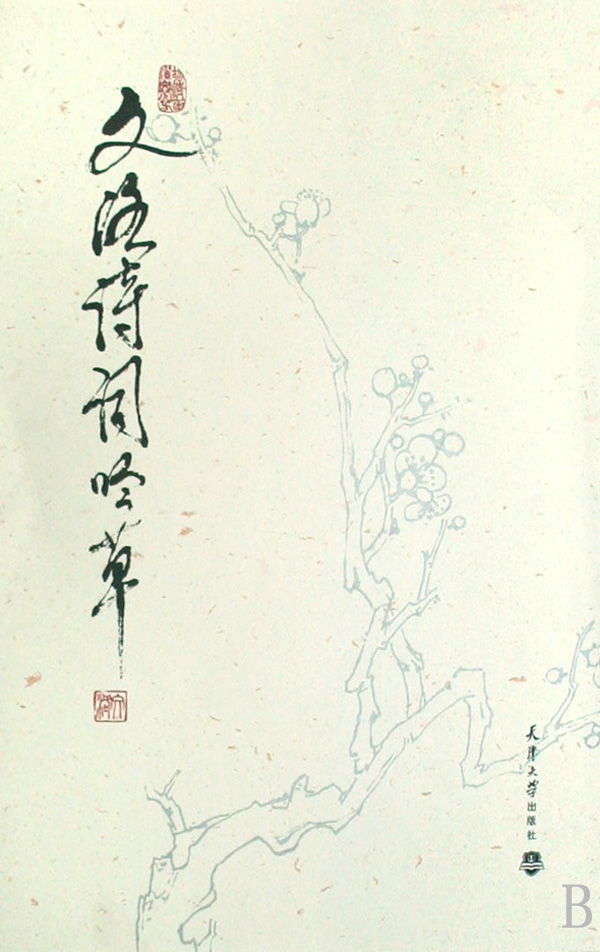 文诗词吟草
天津大学出版社
B